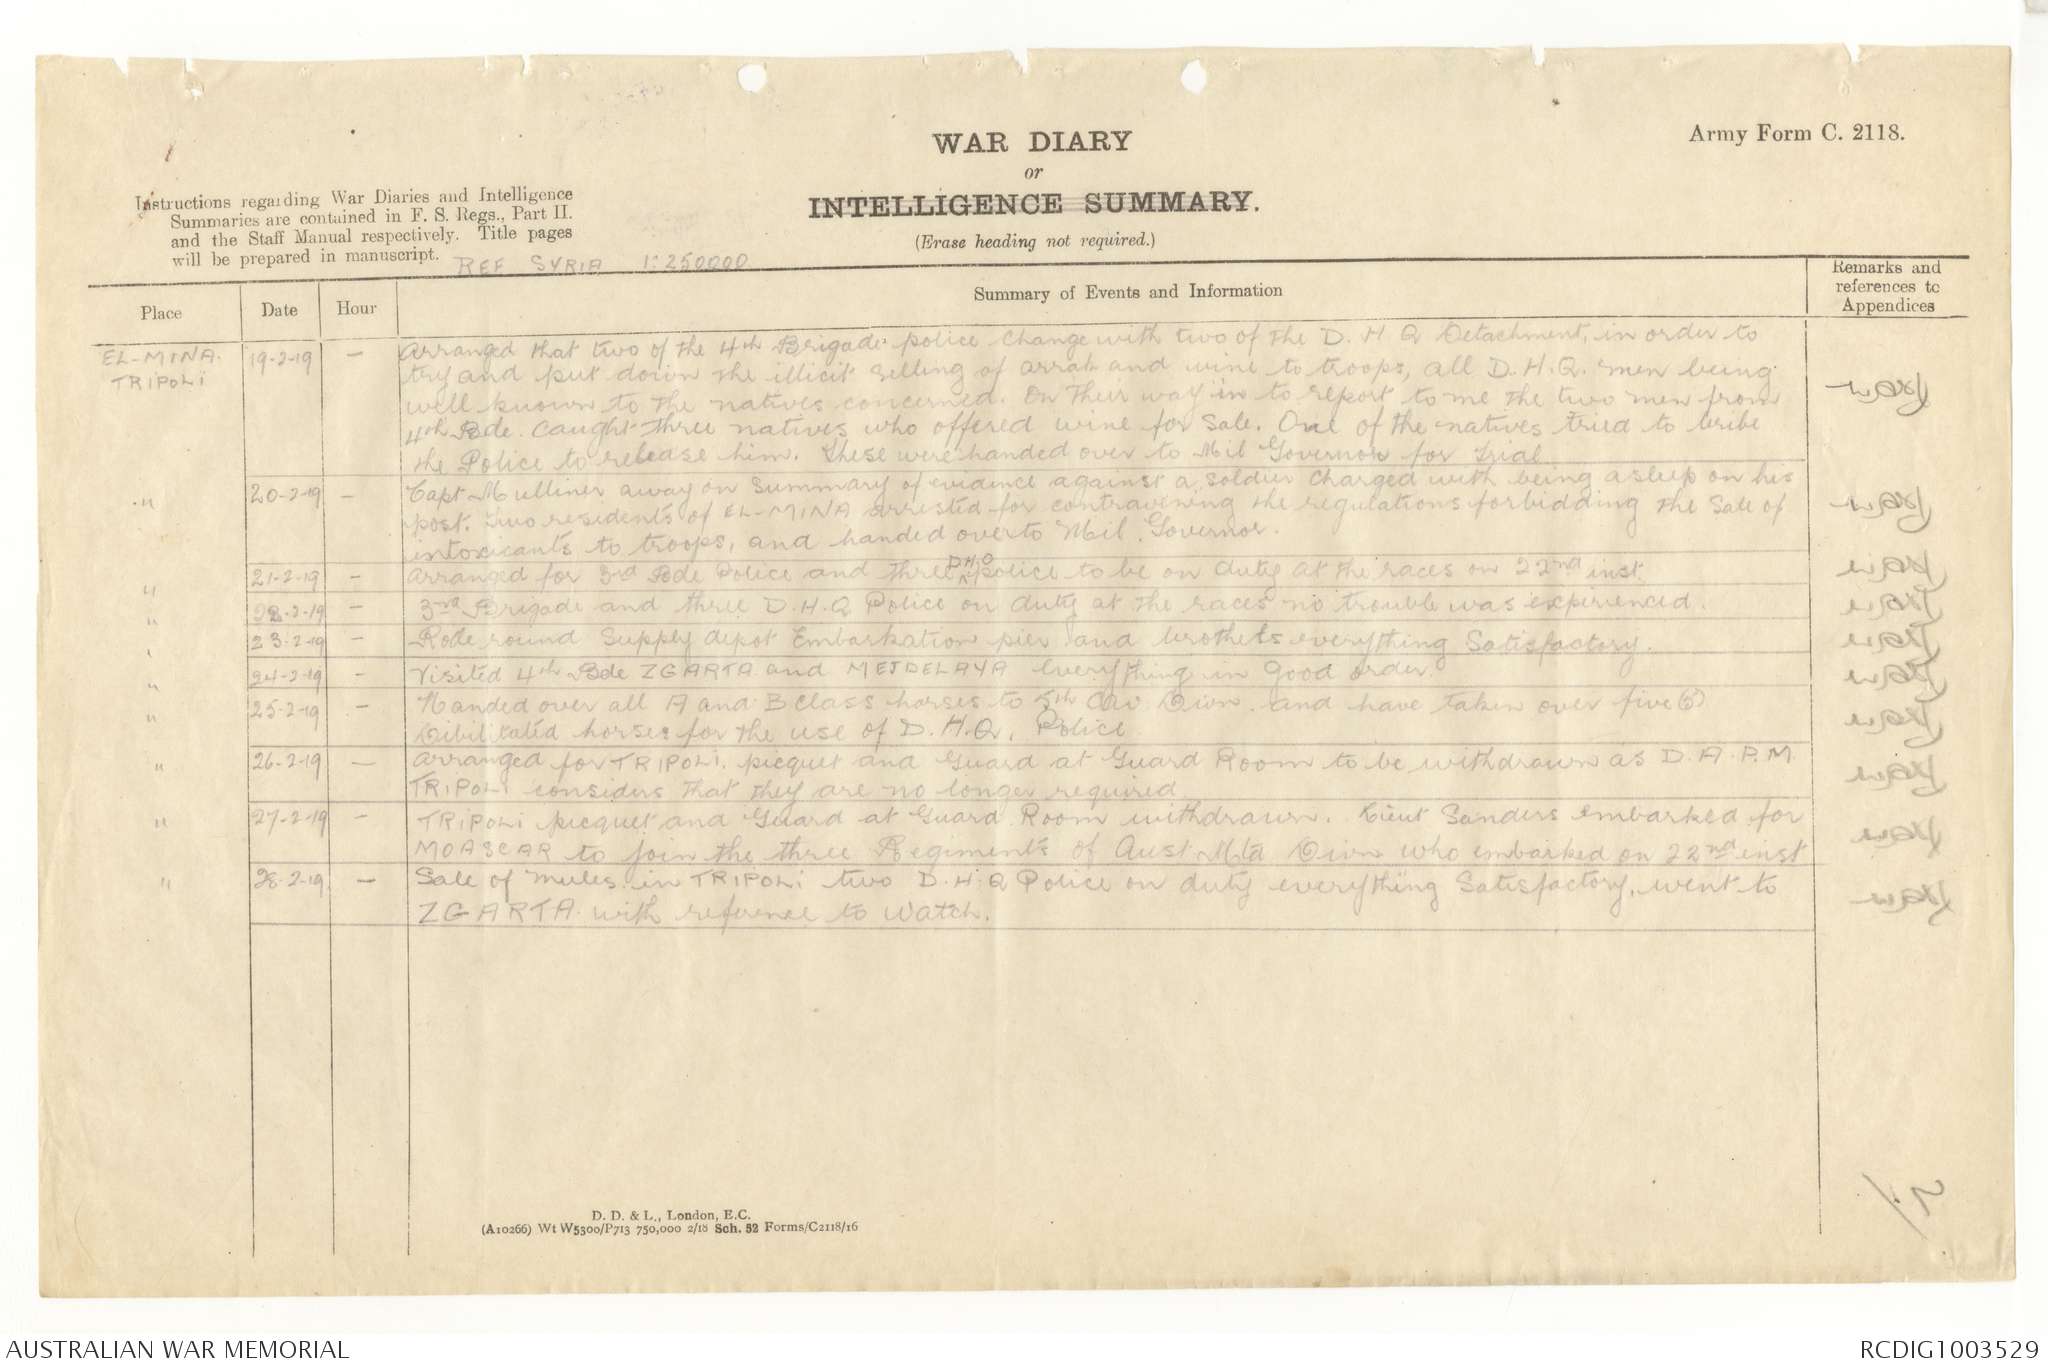 WAR DIARY
or
INTELLIGENCE SUMMARY.
(Erase heading not required.)
Army Form C. 2118.
Instructions regarding War Diaries and Intelligence
Summaries are contained in F. S. Regs., Part II.
and the Staff Manual respectively. Title pages
will be prepared in manuscript.
REF SYRIA 1:250000
Place
Date
Hour
Summary of Events and Information
Remarks and
references to
Appendices
EL-MINA.
TRIPOLI
19-2-19 —
Arranged that two of the 4th Brigade police change with two of the D.H.Q Detachment, in order to
try and put down the illicit selling of arrak and wine to troops, all D.H.Q. men being
well known to the natives concerned. On their way in to report to me the two men from
4th Bde. caught three natives who offered wine for sale. One of the natives tried to bribe
the Police to release him. These were handed over to Mil Governor for trial
" 20-2-19 —
Capt Mulliner away on summary of evidence against a soldier charged with being asleep on his
post. Two residents of EL-MINA arrested for contravening the regulations forbidding the sale of
intoxicants to troops, and handed over to Mil. Governor.
" 21-2-19 —
Arranged for 3rd Bde Police and three D.H.Q police to be on duty at the races on 22nd inst.
" 22-2-19 —
3rd Brigade and three D.H.Q Police on duty at the races no trouble was experienced.
" 23-2-19 —
Rode round Supply depot Embarkation pier and brothels everything Satisfactory.
" 24-2-19 —
Visited 4th Bde ZGARTA and MEJDELAYA everything in good order.
" 25-2-19 —
Handed over all A and B class horses to 5th Cav Divn. and have taken over five (5)
Dibilitated horses for the use of D.H.Q. Police
" 26-2-19 —
Arranged for TRIPOLI. picquet and Guard at Guard Room to be withdrawn as D.A.P.M.
TRIPOLI considers that they are no longer required
" 27-2-19 —
TRIPOLI picquet and Guard at Guard Room withdrawn. Lieut Sanders embarked for
MOASCAR to join the three Regiments of Aust Mtd Divn who embarked on 22nd inst
" 28-2-19 —
Sale of mules in TRIPOLI two D.H.Q Police on duty everything Satisfactory, went to
ZGARTA with reference to Watch.
D. D. & L., London, E.C.
(A10266) Wt W5300/P713 750,000 2/18 Sch. 52 Forms/C2118/16
AUSTRALIAN WAR MEMORIAL
RCDIG1003529